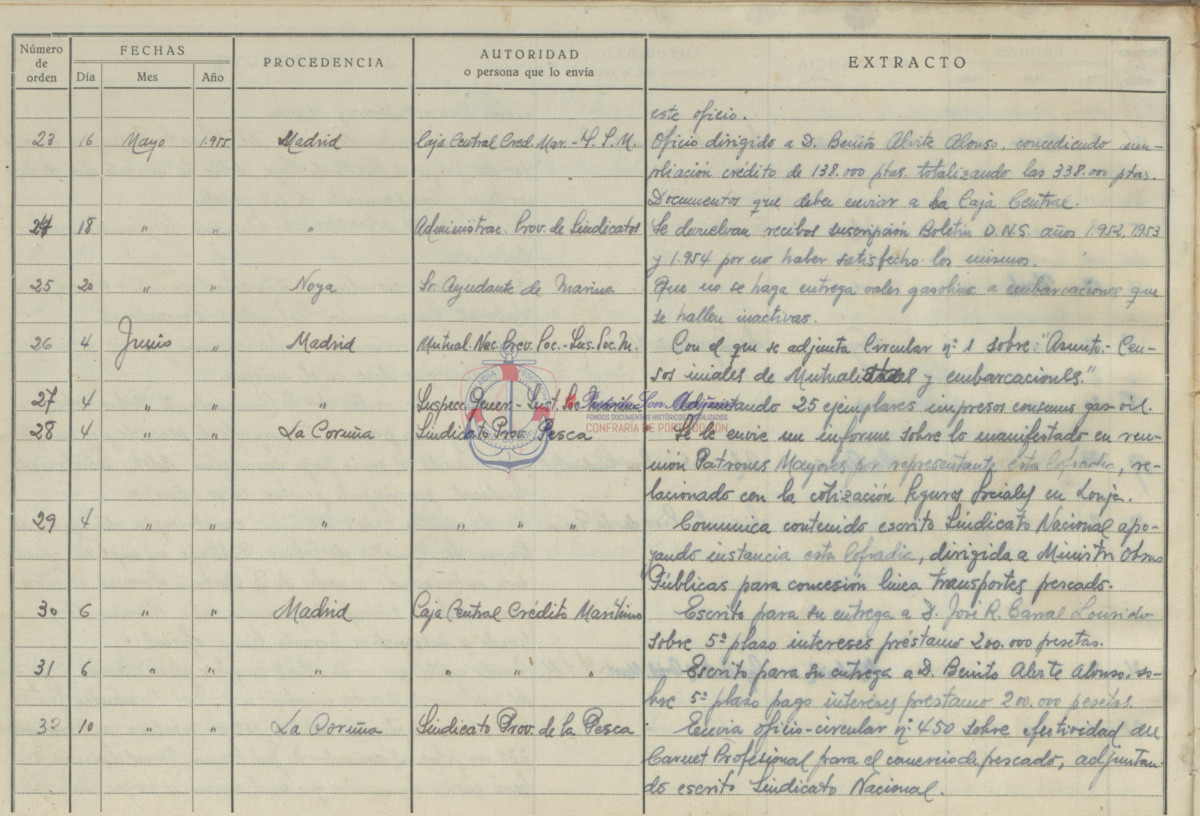 Número de orden FECHAS Día Mes Año PROCEDENCIA AUTORIDAD o persona que lo envía EXTRACTO
este oficio.
23 16 Mayo 1.955 Madrid Caja Central Cred. Mar. - I. S. M. Oficio dirigido a D. Benito Alvite Alonso, concediendo am-
pliación crédito de 138.000 ptas. totalizando las 338.000 ptas.
Documentos que deben enviar a la Caja Central.
24 18 " " " Administrac. Prov. de Sindicatos Se devuelvan recibos suscripción Boletin D.N.S. años 1.952, 1.953
y 1.954 por no haber satisfecho los mismos.
25 20 " " Noya Sr. Ayudante de Marina Que no se haga entrega vales gasolina a embarcaciones que
se hallen inactivas.
26 4 Junio " Madrid Mutual. Nac. Prev. Soc. - Ins. Soc. M. Con el que se adjunta Circular nº 1 sobre: "Asunto.- Cen-
sos iniales de Mutualidades y embarcaciones."
27 4 " " " Inspecc. Gener. - Inst. Soc. Marina Adjuntando 25 ejemplares impresos consumo gas-oil.
FONDOS DOCUMENTAIS HISTÓRICOS DIXITALIZADOS
CONFRARÍA DE PORTO DO SON
28 4 " " La Coruña Sindicato Prov. Pesca Se le envie un informe sobre lo manifestado en reu-
nión Patrones Mayores por representante esta Cofradia, re-
lacionado con la cotización Seguros Sociales en Lonja.
29 4 " " " " " " Comunica contenido escrito Sindicato Nacional apo-
yando instancia esta Cofradia, dirigida a Ministri Obras
Públicas para concesión linea transportes pescado.
30 6 " " Madrid Caja Central Crédito Maritimo Escrito para su entrega a D. José R. Carral Lourido
sobre 5º plazo intereses préstamo 200.000 pesetas.
31 6 " " " " " " Escrito para su entrega a D. Benito Alvite Alonso, so-
bre 5º plazo pago intereses prestamo 200.000 pesetas.
32 10 " " La Coruña Sindicato Prov. de la Pesca Envia oficio-circular nº 450 sobre efectividad del
Carnet Profesional para el comercio de pescado, adjuntan-
do escrito Sindicato Nacional.